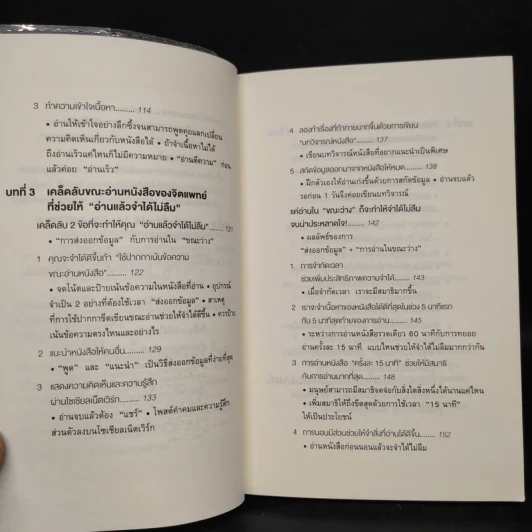 3 ทำความเข้าใจเนื้อหา......... 114
• อ่านให้เข้าใจอย่างลึกซึ้งจนสามารถพูดคุยแลกเปลี่ยน
ความคิดเห็นเกี่ยวกับหนังสือได้ • ถ้าจำเนื้อหาไม่ได้
ถึงอ่านเร็วแค่ไหนก็ไม่มีความหมาย • “อ่านตีความ” ก่อน
แล้วค่อย “อ่านเร็ว”
บทที่ 3 เคล็ดลับขณะอ่านหนังสือของจิตแพทย์
ที่ช่วยให้ “อ่านแล้วจำได้ไม่ลืม”
เคล็ดลับ 2 ข้อที่จะทำให้คุณ “อ่านแล้วจำได้ไม่ลืม” 121
• “การส่งออกข้อมูล” กับการอ่านใน “ขณะว่าง”
1 คุณจะจำได้ดีขึ้นถ้า “ใช้ปากกาเน้นข้อความ
ขณะอ่านหนังสือ”......... 122
• จดโน้ตและป้ายเน้นข้อความในหนังสือที่อ่าน • อุปกรณ์
จำเป็น 2 อย่างที่ต้องใช้เวลา “ส่งออกข้อมูล” • สาเหตุ
ที่การใช้ปากกาขีดเขียนขณะอ่านช่วยให้จำได้ดีขึ้น • ควรป้าย
เน้นข้อความตรงไหนและอย่างไร
2 แนะนำหนังสือให้คนอื่น......... 129
• “พูด” และ “แนะนำ” เป็นวิธีส่งออกข้อมูลที่ง่ายที่สุด
3 แสดงความคิดเห็นและความรู้สึก
ผ่านโซเชียลเน็ตเวิร์ก......... 133
• อ่านจบแล้วต้อง “แชร์” • โพสต์คำคมและความรู้สึก
ส่วนตัวลงบนโซเชียลเน็ตเวิร์ก
4 ลองทำเรื่องที่ท้าทายมากขึ้นด้วยการเขียน
“บทวิจารณ์หนังสือ”......... 137
• เขียนบทวิจารณ์หนังสือที่อยากแนะนำเป็นพิเศษ
5 สกัดข้อมูลออกมาจากหนังสือให้หมด......... 138
• ฝึกตัวเองให้อ่านเก่งขึ้นด้วยการสกัดข้อมูล • อ่านจบแล้ว
รอก่อน 1 วันจึงค่อยเขียนบทวิจารณ์
แค่อ่านใน “ขณะว่าง” ก็จะทำให้จำได้ไม่ลืม
จนน่าประหลาดใจ!......... 142
• ผลลัพธ์ของการ
“ส่งออกข้อมูล” + “การอ่านในขณะว่าง”
1 การจำกัดเวลา
ช่วยเพิ่มประสิทธิภาพความจำได้!......... 143
• เมื่อจำกัดเวลา เราจะมีสมาธิมากขึ้น
2 เราจะจำเนื้อหาของหนังสือได้ดีที่สุดในช่วง 5 นาทีแรก
กับ 5 นาทีสุดท้ายของการอ่าน......... 145
• ระหว่างการอ่านหนังสือรวดเดียว 60 นาทีกับการทยอย
อ่านครั้งละ 15 นาที แบบไหนช่วยให้จำได้ไม่ลืมมากกว่ากัน
3 การอ่านหนังสือ “ครั้งละ 15 นาที” ช่วยให้มีสมาธิ
กับการอ่านมากที่สุด......... 148
• มนุษย์สามารถมีสมาธิจดจ่อกับสิ่งใดสิ่งหนึ่งได้นานแค่ไหน
• เพิ่มสมาธิให้ถึงขีดสุดด้วยการใช้เวลา “15 นาที”
ให้เป็นประโยชน์
4 การนอนมีส่วนช่วยให้จำสิ่งที่อ่านได้ดีขึ้น......... 152
• อ่านหนังสือก่อนนอนแล้วจะจำได้ไม่ลืม